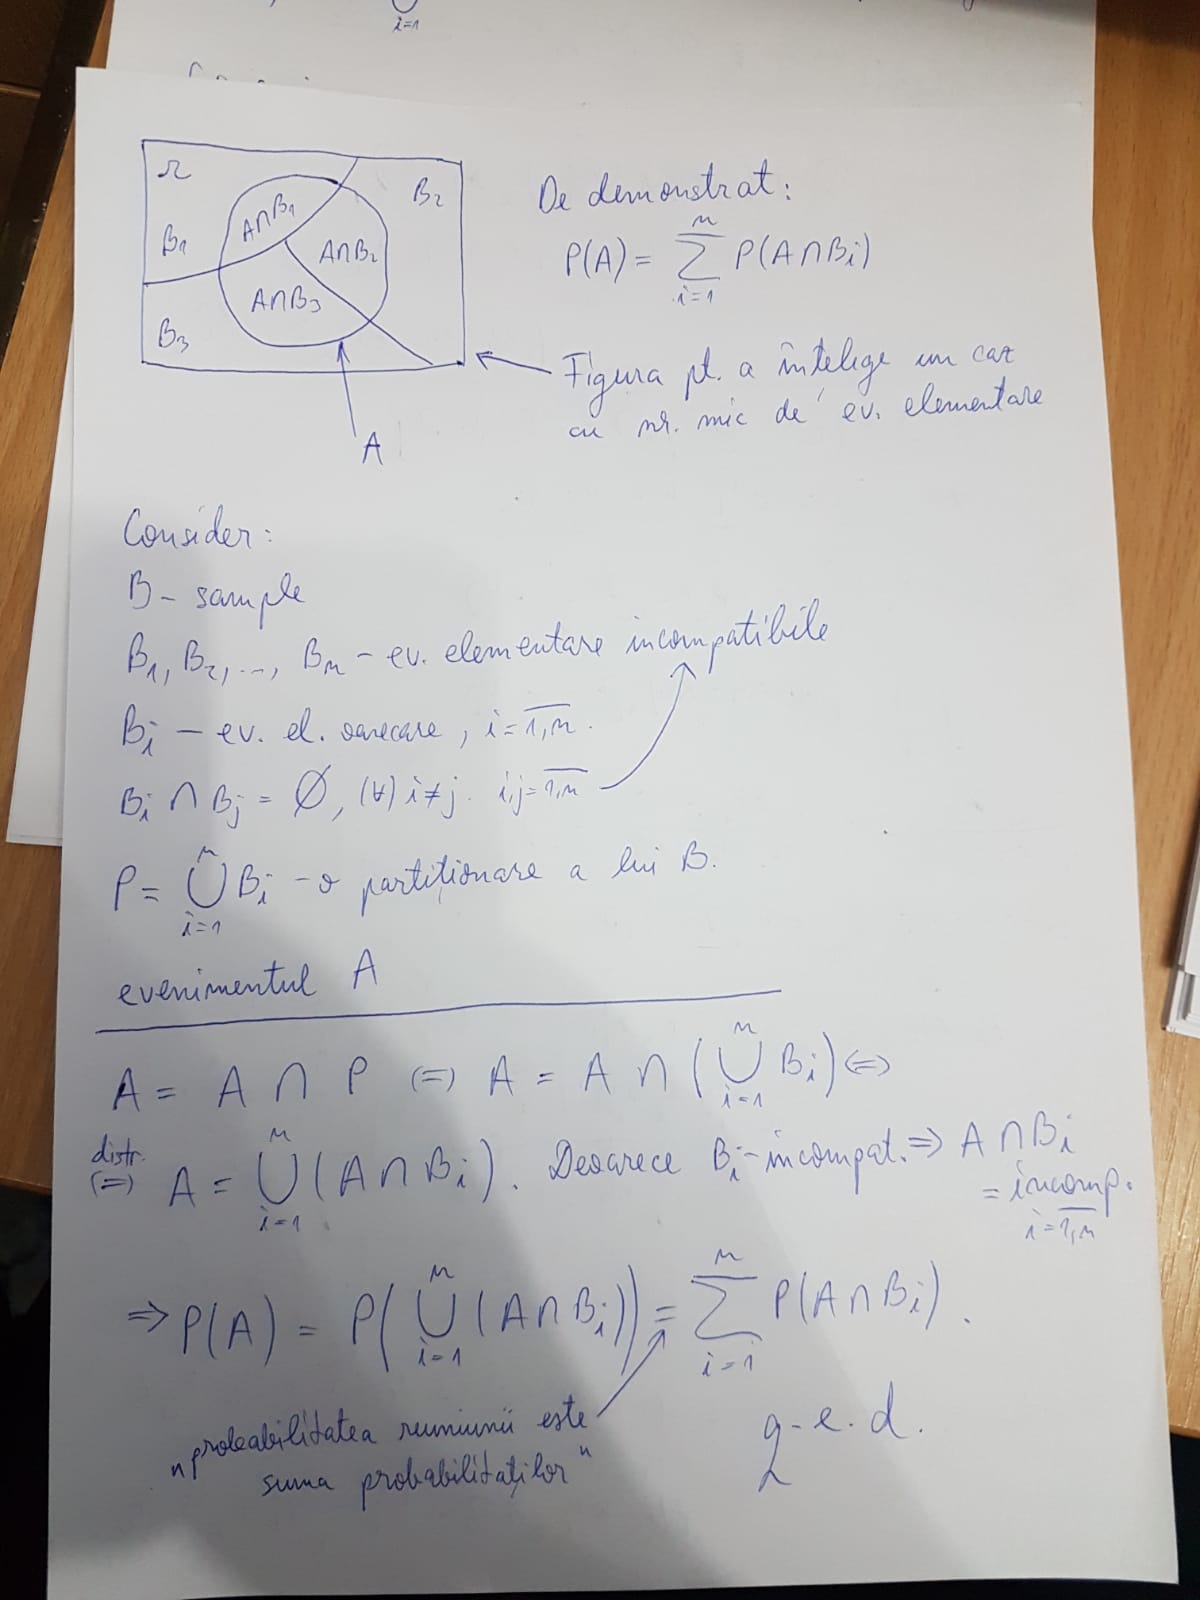 i=1
Ω
B₁
A∩B₁
B₂
A∩B₂
A∩B₃
B₃
A
De demonstrat:
P(A) = ∑_{i=1}^{n} P(A∩Bi)
Figura pt. a înțelege un caz
cu nr. mic de ev. elementare
Consider:
B - sample
B₁, B₂, ..., Bn - ev. elementare incompatibile
Bi - ev. el. oarecare, i = \overline{1,n}.
Bi ∩ Bj = ∅, (∀) i≠j. i,j = \overline{1,n}
P = ⋃_{i=1}^{n} Bi - o partiționare a lui B.
evenimentul A
A = A ∩ P (=) A = A ∩ (⋃_{i=1}^{n} Bi) (=)
distr. (=) A = ⋃_{i=1}^{n} (A∩Bi). Deoarece Bi - incompat. ⇒ A∩Bi
= incomp.
i = \overline{1,n}
⇒ P(A) = P(⋃_{i=1}^{n} (A∩Bi)) = ∑_{i=1}^{n} P(A∩Bi).
„probabilitatea reuniunii este
suma probabilităților"
q.e.d.